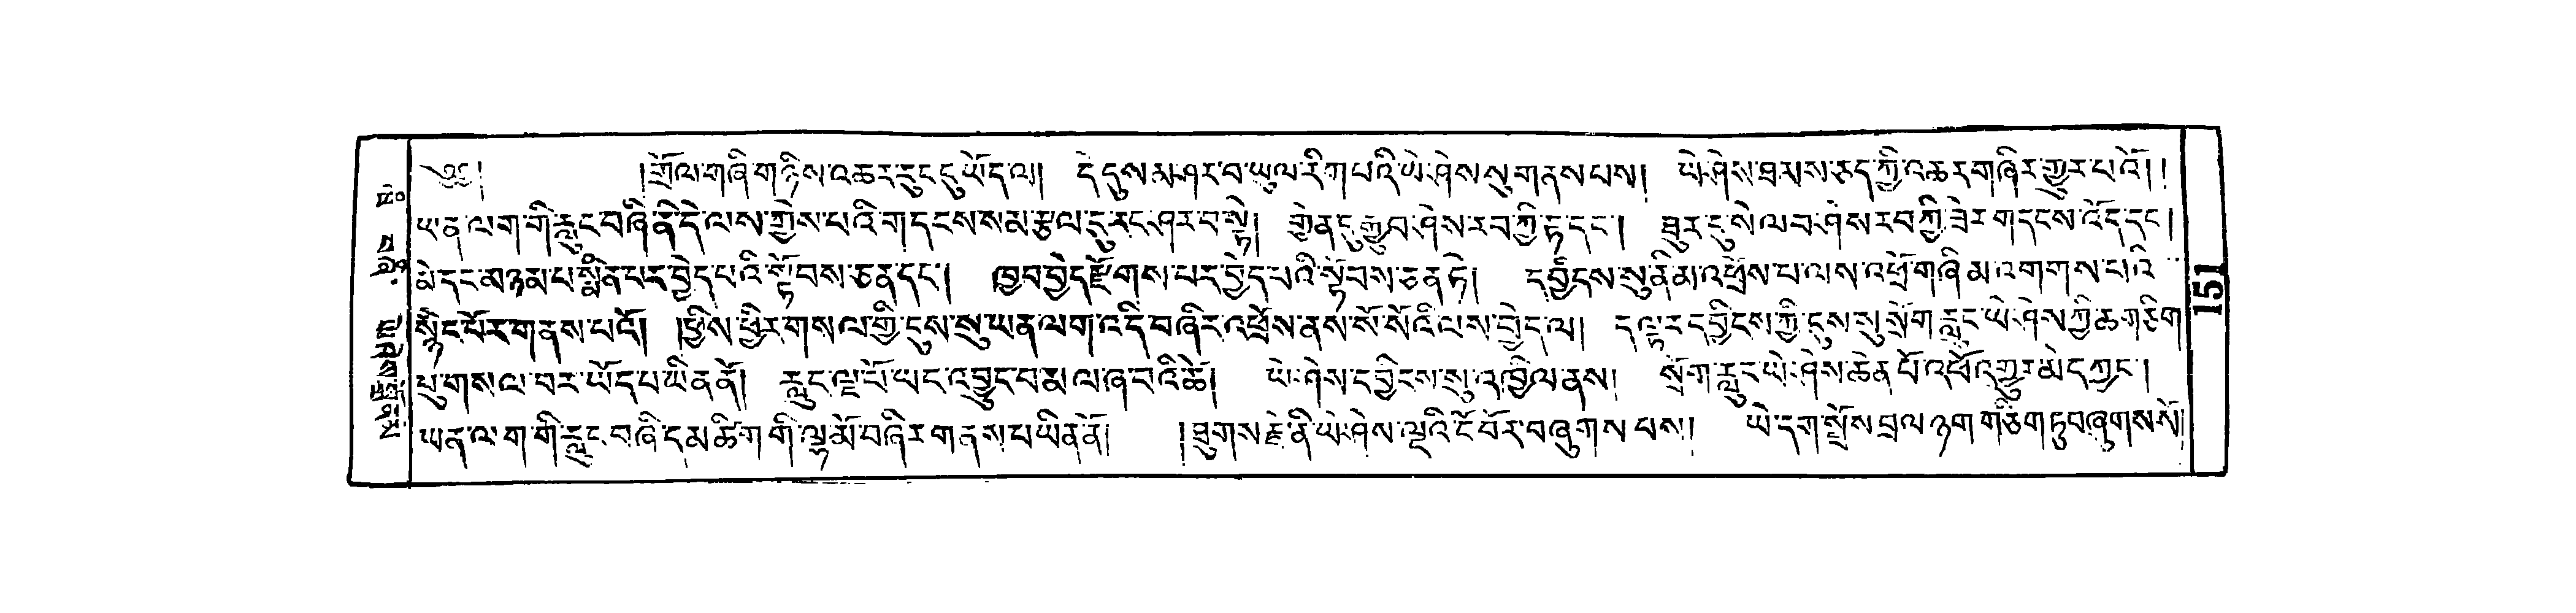 ༄༅། །གྲོལ་གཞི་གཉིས་འཆར་རུང་དུ་ཡོད་ལ། དེ་དུས་མ་ཤར་བ་ཡུལ་རིག་པའི་ཡེ་ཤེས་སུ་གནས་པས། ཡེ་ཤེས་ཐམས་ཅད་ཀྱི་འཆར་གཞིར་གྱུར་པའོ། །
ཡན་ལག་གི་རླུང་བཞི་ནི་དེ་ལས་གྱེས་པའི་གདངས་སམ་རྩལ་དུ་རང་ཤར་བ་སྟེ། གྱེན་དུ་རྒྱུབ་ཤེས་རབ་ཀྱི་རྟ་དང་། ཐུར་དུ་སེལ་བ་ཤེས་རབ་ཀྱི་ཟེར་གདངས་འོད་དང་།
མེ་དང་མཉམ་པ་སྨིན་པར་བྱེད་པའི་སྟོབས་ཅན་དང་། ཁྱབ་བྱེད་རྫོགས་པར་བྱེད་པའི་སྟོབས་ཅན་ཏེ། དབྱིངས་སུ་ནི་མ་འཕྲོས་པ་ལས་འཕྲོ་གཞི་མ་འགགས་པའི་
སྙིང་པོར་གནས་པའོ། །ཕྱིས་ཕྱིར་གསལ་གྱི་དུས་སུ་ཡན་ལག་འདི་བཞིར་འཕྲོས་ནས་སོ་སོའི་ལས་བྱེད་ལ། ད་ལྟར་དབྱིངས་ཀྱི་དུས་སུ་སྲོག་རླུང་ཡེ་ཤེས་ཀྱི་ཆ་གཅིག་
པུ་གསལ་བར་ཡོད་པ་ཡིན་ནོ། རླུང་ལྔ་པོ་ཡང་འབྱུང་བ་མ་ལ་ཞ་བའི་ཚེ། ཡེ་ཤེས་དབྱིངས་སུ་འཁྱིལ་ནས། སྲོག་རླུང་ཡེ་ཤེས་ཆེན་པོ་འཕོ་འགྱུར་མེད་ཀྱང་།
ཡན་ལག་གི་རླུང་བཞི་དམ་ཚིག་གི་ལྷ་མོ་བཞིར་གནས་པ་ཡིན་ནོ། །ཐུགས་རྗེ་ནི་ཡེ་ཤེས་ལྔའི་ངོ་བོར་བཞུགས་པས། ཡེ་དག་སྤྲོས་བྲལ་ཉག་གཅིག་ཏུ་བཞུགས་སོ།
151